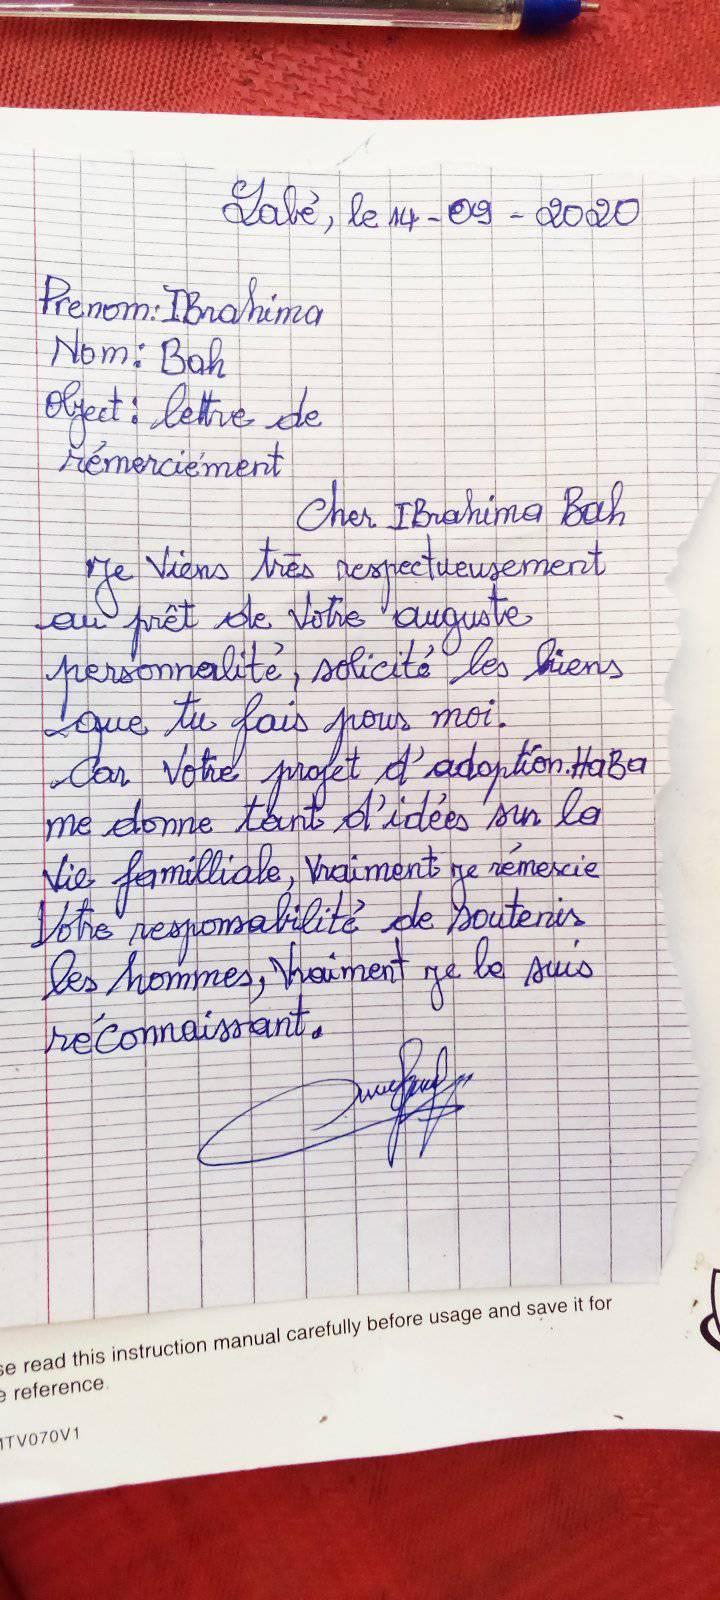 Labé, le 14-09-2020
Prenom: IBrahima
Nom: Bah
Object: lettre de
rémerciément
Cher IBrahima Bah
Je Viens très respectueusement
au prêt de Votre auguste
personnalité, solicité les biens
que tu fais pour moi.
Car Votre projet d'adoption.HaBa
me donne tant d'idées sur la
Vie familliale, Vraiment je rémercie
Votre responsabilité de soutenir
les hommes, Vraiment je le suis
réconnaissant.
se read this instruction manual carefully before usage and save it for
e reference.
MTV070V1